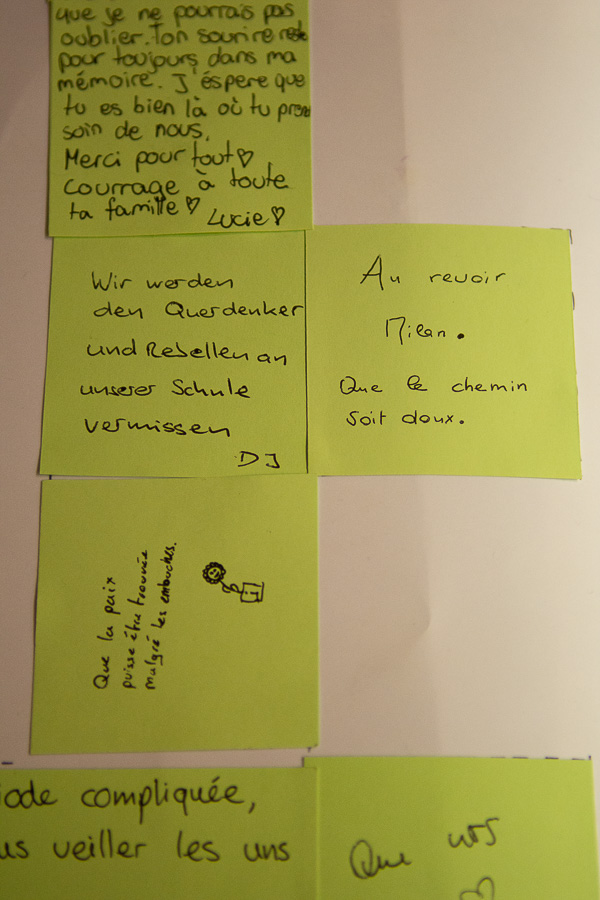 que je ne pourrais pas
oublier. Ton sourire reste
pour toujours dans ma
mémoire. J'éspere que
tu es bien là où tu prends
soin de nous.
Merci pour tout♡
Courrage à toute
ta famille♡
Lucie♡
Wir werden
den Querdenker
und Rebellen an
unserer Schule
vermissen
DJ
Au revoir
Milan.
Que le chemin
soit doux.
Que la paix
puisse être trouvée
malgré les embuches.
iode compliquée,
us veiller les uns
Que nos